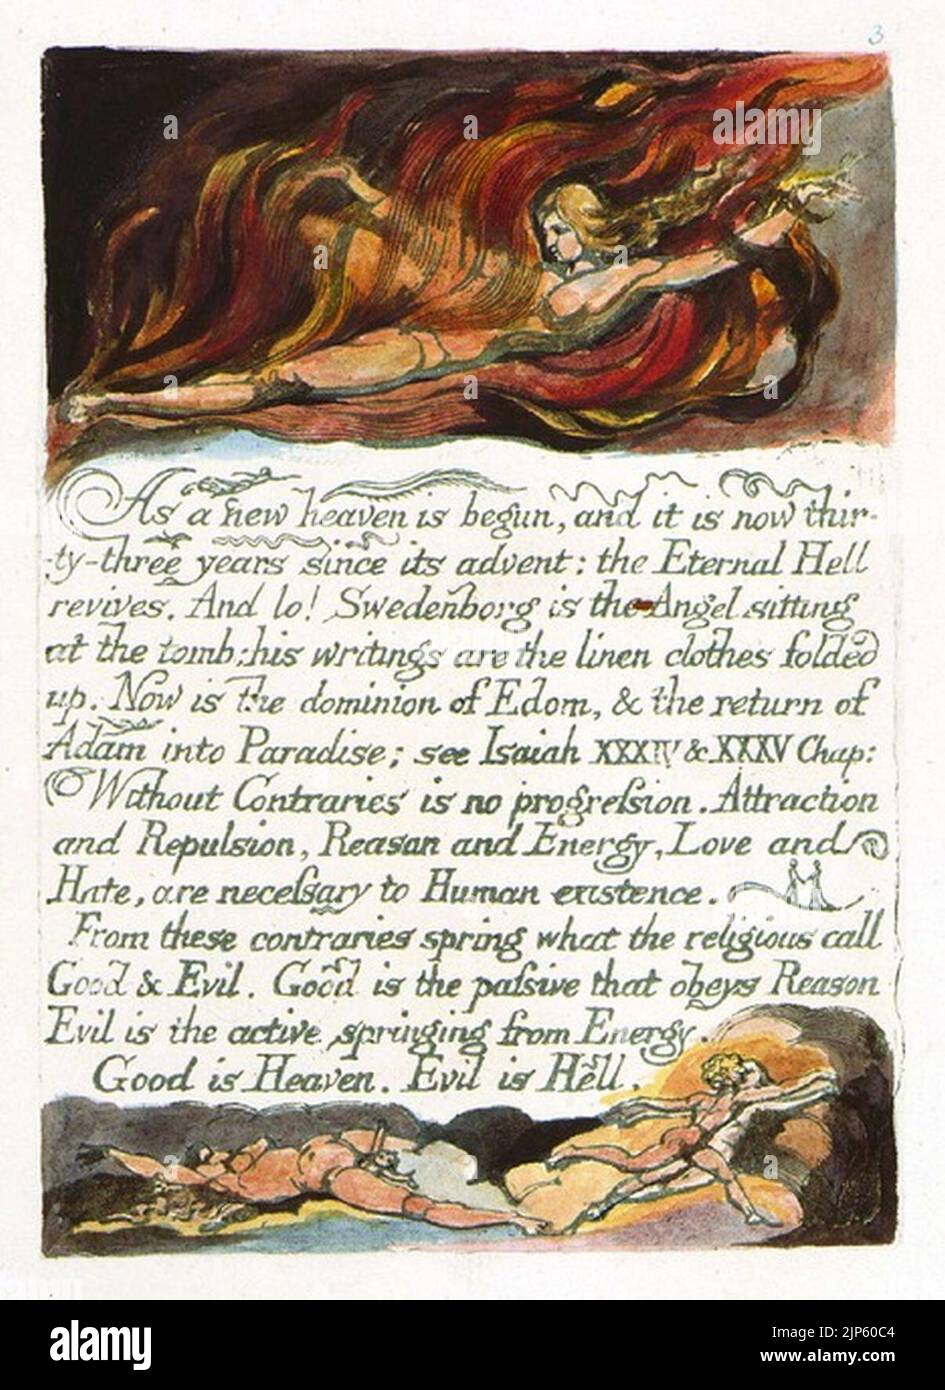 3
As a new heaven is begun, and it is now thir-
-ty-three years since its advent: the Eternal Hell
revives. And lo! Swedenborg is the Angel sitting
at the tomb: his writings are the linen clothes folded
up. Now is the dominion of Edom, & the return of
Adam into Paradise; see Isaiah XXXIV & XXXV Chap:
Without Contraries is no progreſsion. Attraction
and Repulsion, Reason and Energy, Love and
Hate, are neceſsary to Human existence.
From these contraries spring what the religious call
Good & Evil. Good is the paſsive that obeys Reason
Evil is the active springing from Energy.
Good is Heaven. Evil is Hell.
alamy
Image ID: 2JP60C4
www.alamy.com